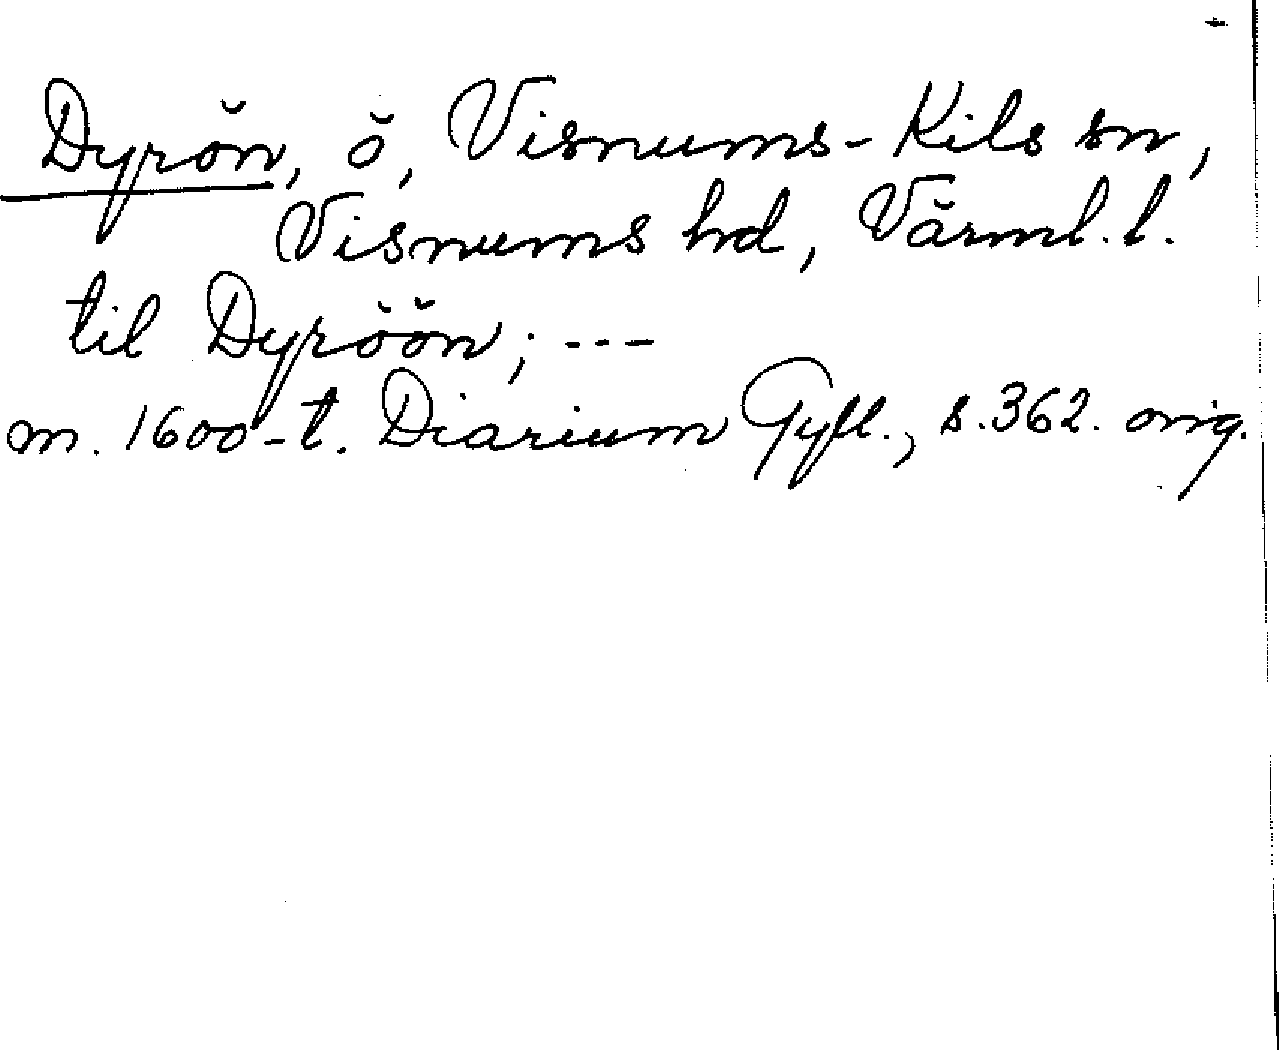 Dyrön, ö, Visnums-Kils sn,
Visnums hd, Värml. l.
til Dyröön; ---
m. 1600-t. Diarium Gyll., s. 362. orig.